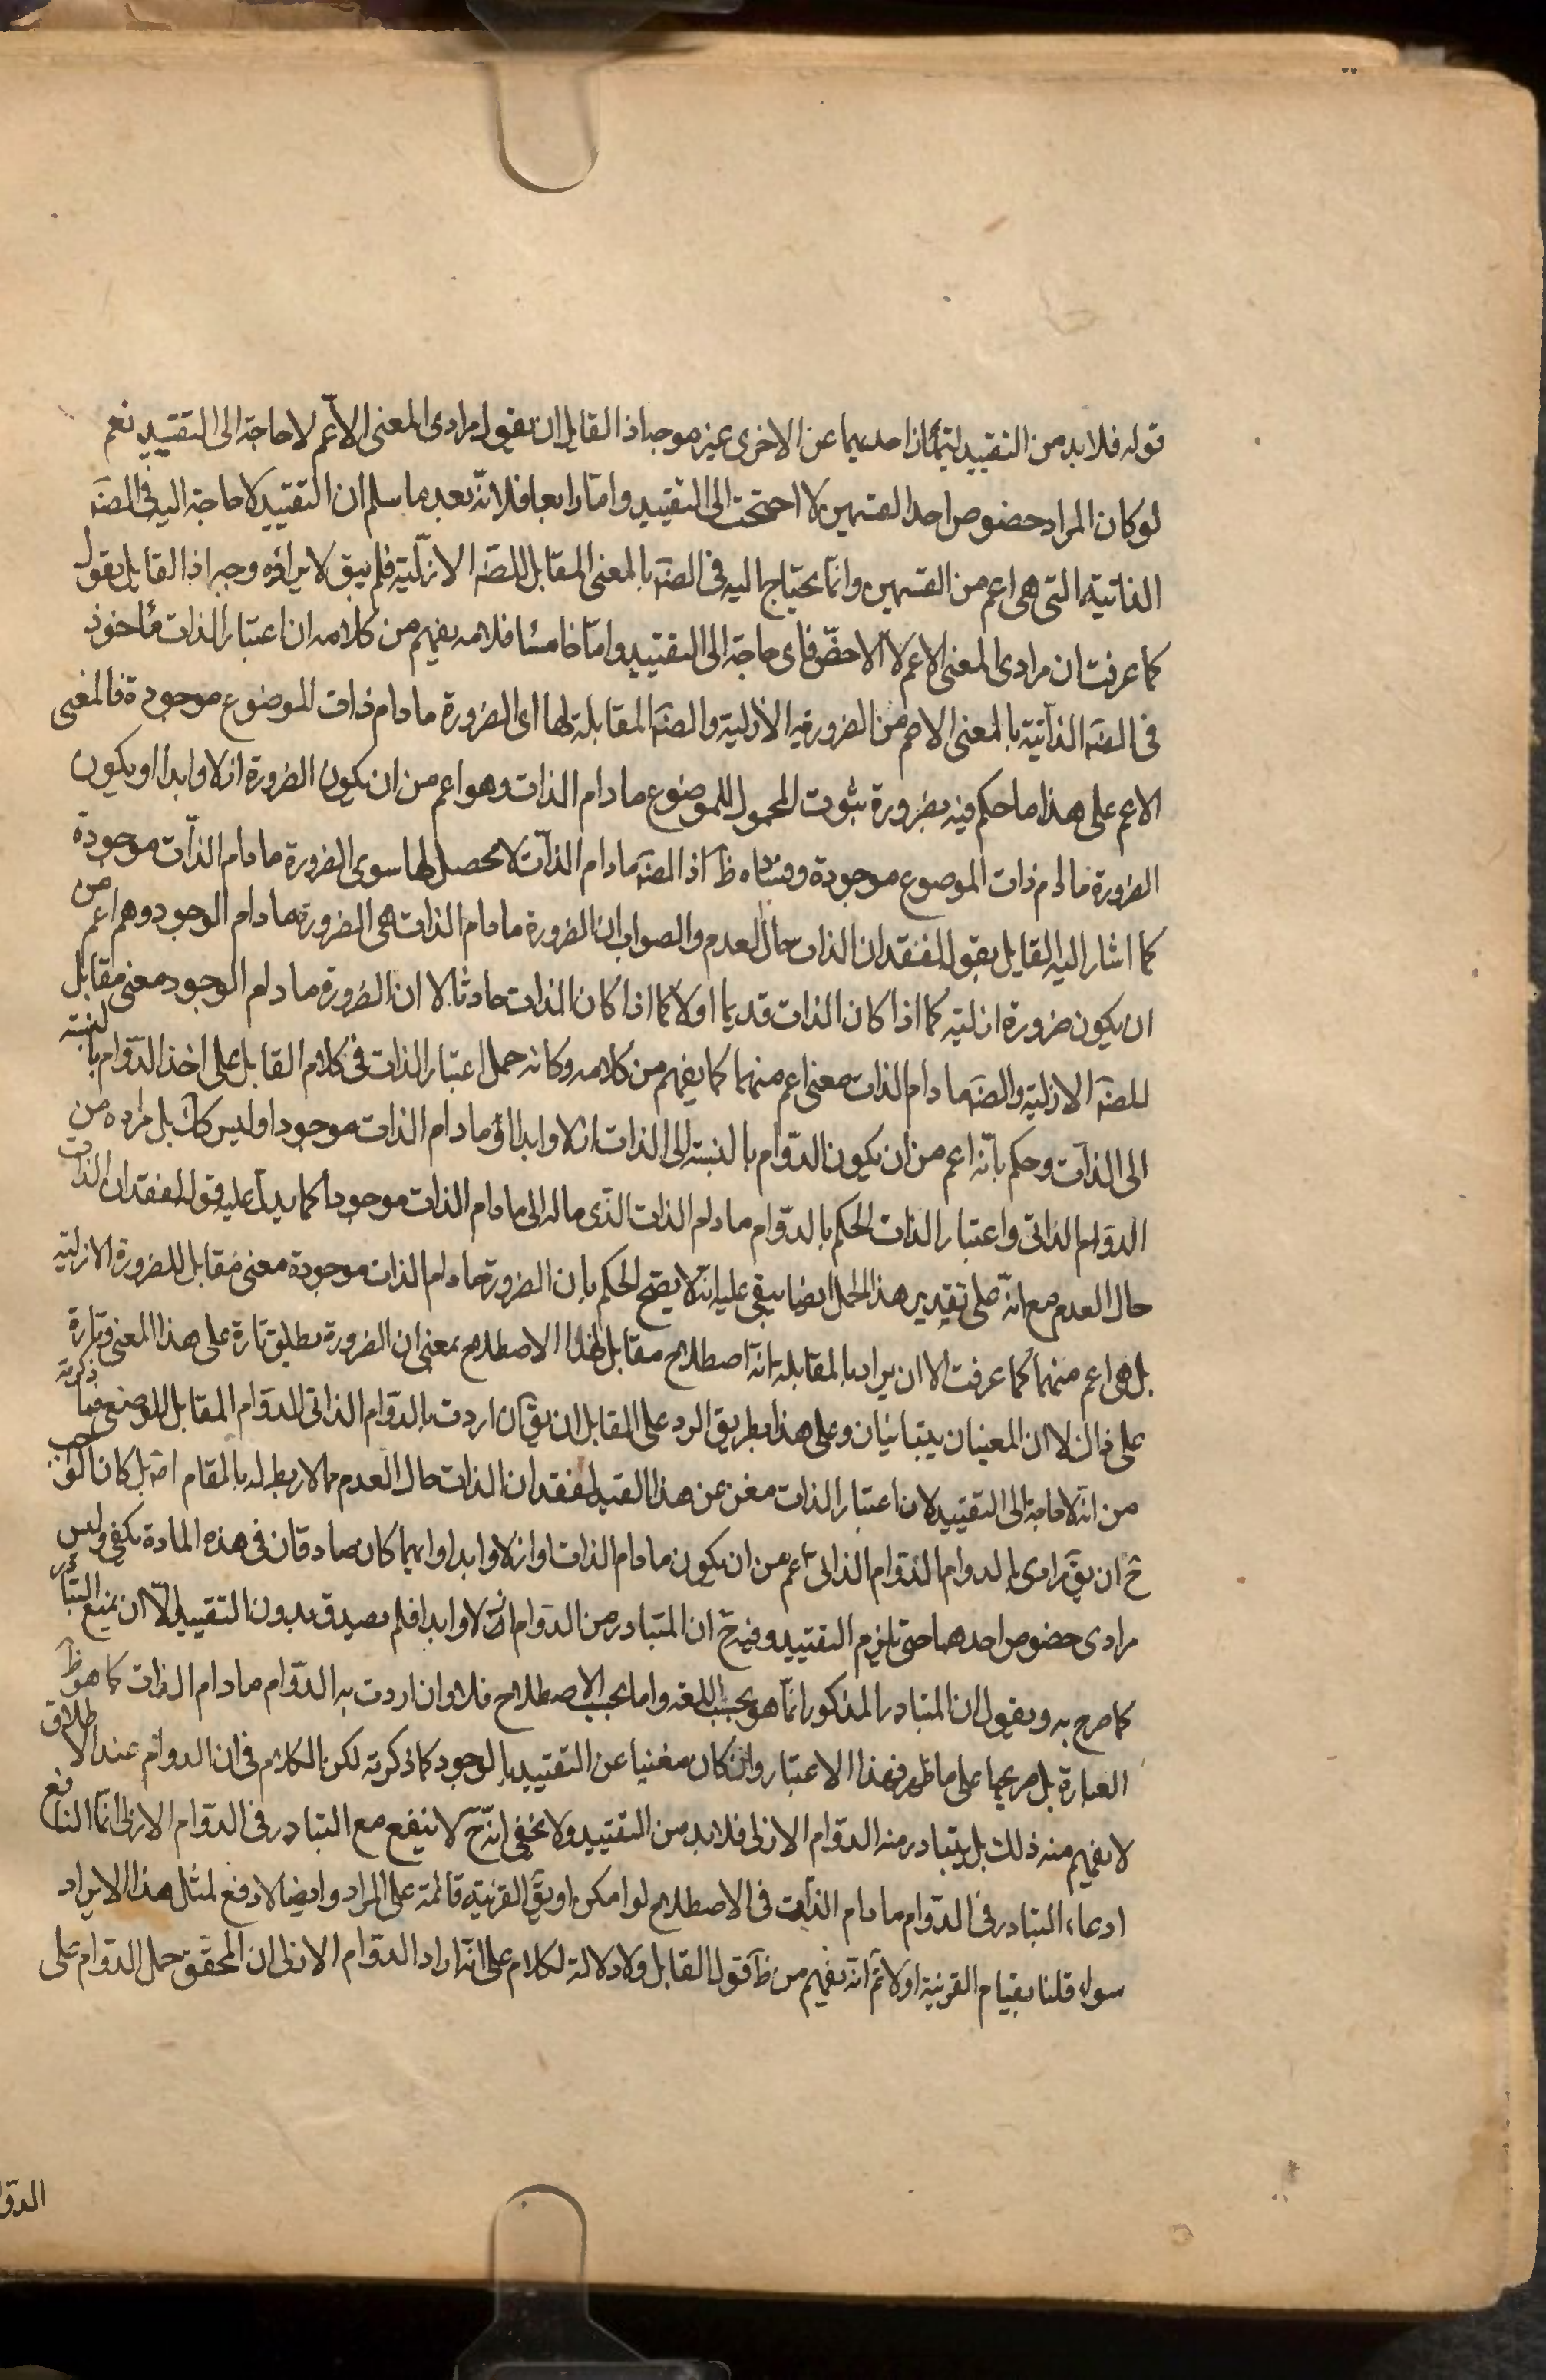 قوله فلا بد من التقييد ليتماز احديهما عن الاخرى غير موجه اذ القايل ان يقول مرادى المعنى الاعم لا حاجة الى التقييد نعم
لو كان المراد خصوص احد القسمين لا احتجت الى التقييد واما رابعا فلانه بعد ما سلم ان التقييد لا حاجة اليه فى الضرَ
الذاتية التى هى اعم من القسمين وانما يحتاج اليه فى الضرَ بالمعنى المقابل للضرَ الازلية فلم يبق لايراده وجه اذ القايل يقول
كما عرفت ان مرادى المعنى الاعم لا الاخص فاى حاجة الى التقييد واما خامسا فلانه يفهم من كلامه ان اعتبار الذات مأخوذ
فى الضرَ الذاتية بالمعنى الاعم من الضرورية الازلية والضرَ المقابلة لها اى الضرورة ما دام ذات الموضوع موجودة فالمعنى
الاعم على هذا ما حكم فيه بضرورة ثبوت المحمول للموضوع ما دام الذات وهو اعم من ان يكون الضرورة ازلا وابدا او يكون
الضرورة ما دام ذات الموضوع موجودة وفساده ظَ اذ الضرَ ما دام الذات لا محصل لها سوى الضرورة ما دام الذات موجودة
كما اشار اليه القايل بقوله لفقدان الذات حال العدم والصواب ان الضرورة ما دام الذات هى الضرورة ما دام الوجود وهم اعم من
ان يكون ضرورة ازلية كما اذا كان الذات قديما اولا كما اذا كان الذات حادثا لا ان الضرورة ما دام الوجود معنى مقابل
للضرَ الازلية والضرَ ما دام الذات معنى اعم منهما كما يفهم من كلامه وكانه حمل اعتبار الذات فى كلام القايل على اخذ الدوام بالنسبة
الى الذات وحكم بانه اعم من ان يكون الدوام بالنسبة الى الذات ازلا وابدا او ما دام الذات موجودا وليس كَك بل مراده من
الدوام الذاتى واعتبار الذات الحكم بالدوام ما دام الذات الذى ماله الى ما دام الذات موجودا كما يدل عليه قوله لفقدان الذات
حال العدم مع انه على تقدير هذا الحمل ايضا يبقى عليه انه لا يصح الحكم بان الضرورة ما دام الذات موجودة معنى مقابل للضرورة الازلية
بل هى اعم منهما كما عرفت الا ان يراد بالمقابلة انه اصطلاح مقابل لهذا الاصطلاح بمعنى ان الضرورة يطلق تارة على هذا المعنى وتارة
على ذاك لا ان المعنيان يتباينان وعلى هذا بطريق الرد على القايل ان يقَ ان اردت بالدوام الذاتى الدوام المقابل للوصفى فما ذكرته
من انه لا حاجة الى التقييد لان اعتبار الذات مغن عن هذا القيد لفقدان الذات حال العدم مما لا ربط له بالمقام اصَ بل كان الواجب
حَ ان يقَ مرادى بالدوام الدوام الذاتى اعم من ان يكون ما دام الذات او ازلا وابدا وايهما كان صادقان فى هذه المادة يكفى وليس
مرادى خصوص احدهما حتى يلزم التقييد وفيه حَ ان المتبادر من الدوام ازلا وابدا فلم يصدق بدون التقييد الا ان يمنع التبادر
كما صرح به ويقول ان المتبادر المذكور انما هو بحسب اللغة واما بحسب الاصطلاح فلا وان اردت به الدوام ما دام الذات كما هو ظَ
العبارة بل صريحها على ما ظهر فهذا الاعتبار وان كان مغنيا عن التقييد بالوجود كما ذكرته لكن الكلام فى ان الدوام عند الاطلاق
لا يفهم منه ذلك بل يتبادر منه الدوام الازلى فلا بد من التقييد ولا يخفى انه حَ لا ينفع مع التبادر فى الدوام الازلى انما النافع
ادعاء التبادر فى الدوام ما دام الذات فى الاصطلاح لو امكن او يقَ القرينة قائمة على المراد وايضا لا دفع لمثل هذا الايراد
سواء قلنا بقيام القرينة اولا ثم انه يفهم من ظَ قول القايل ولا دلالة لكلام على انه اراد الدوام الازلى ان المحقق حمل الدوام على